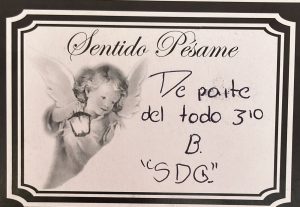 Sentido Pésame
De parte
del todo 3ro
B.
"SDG"